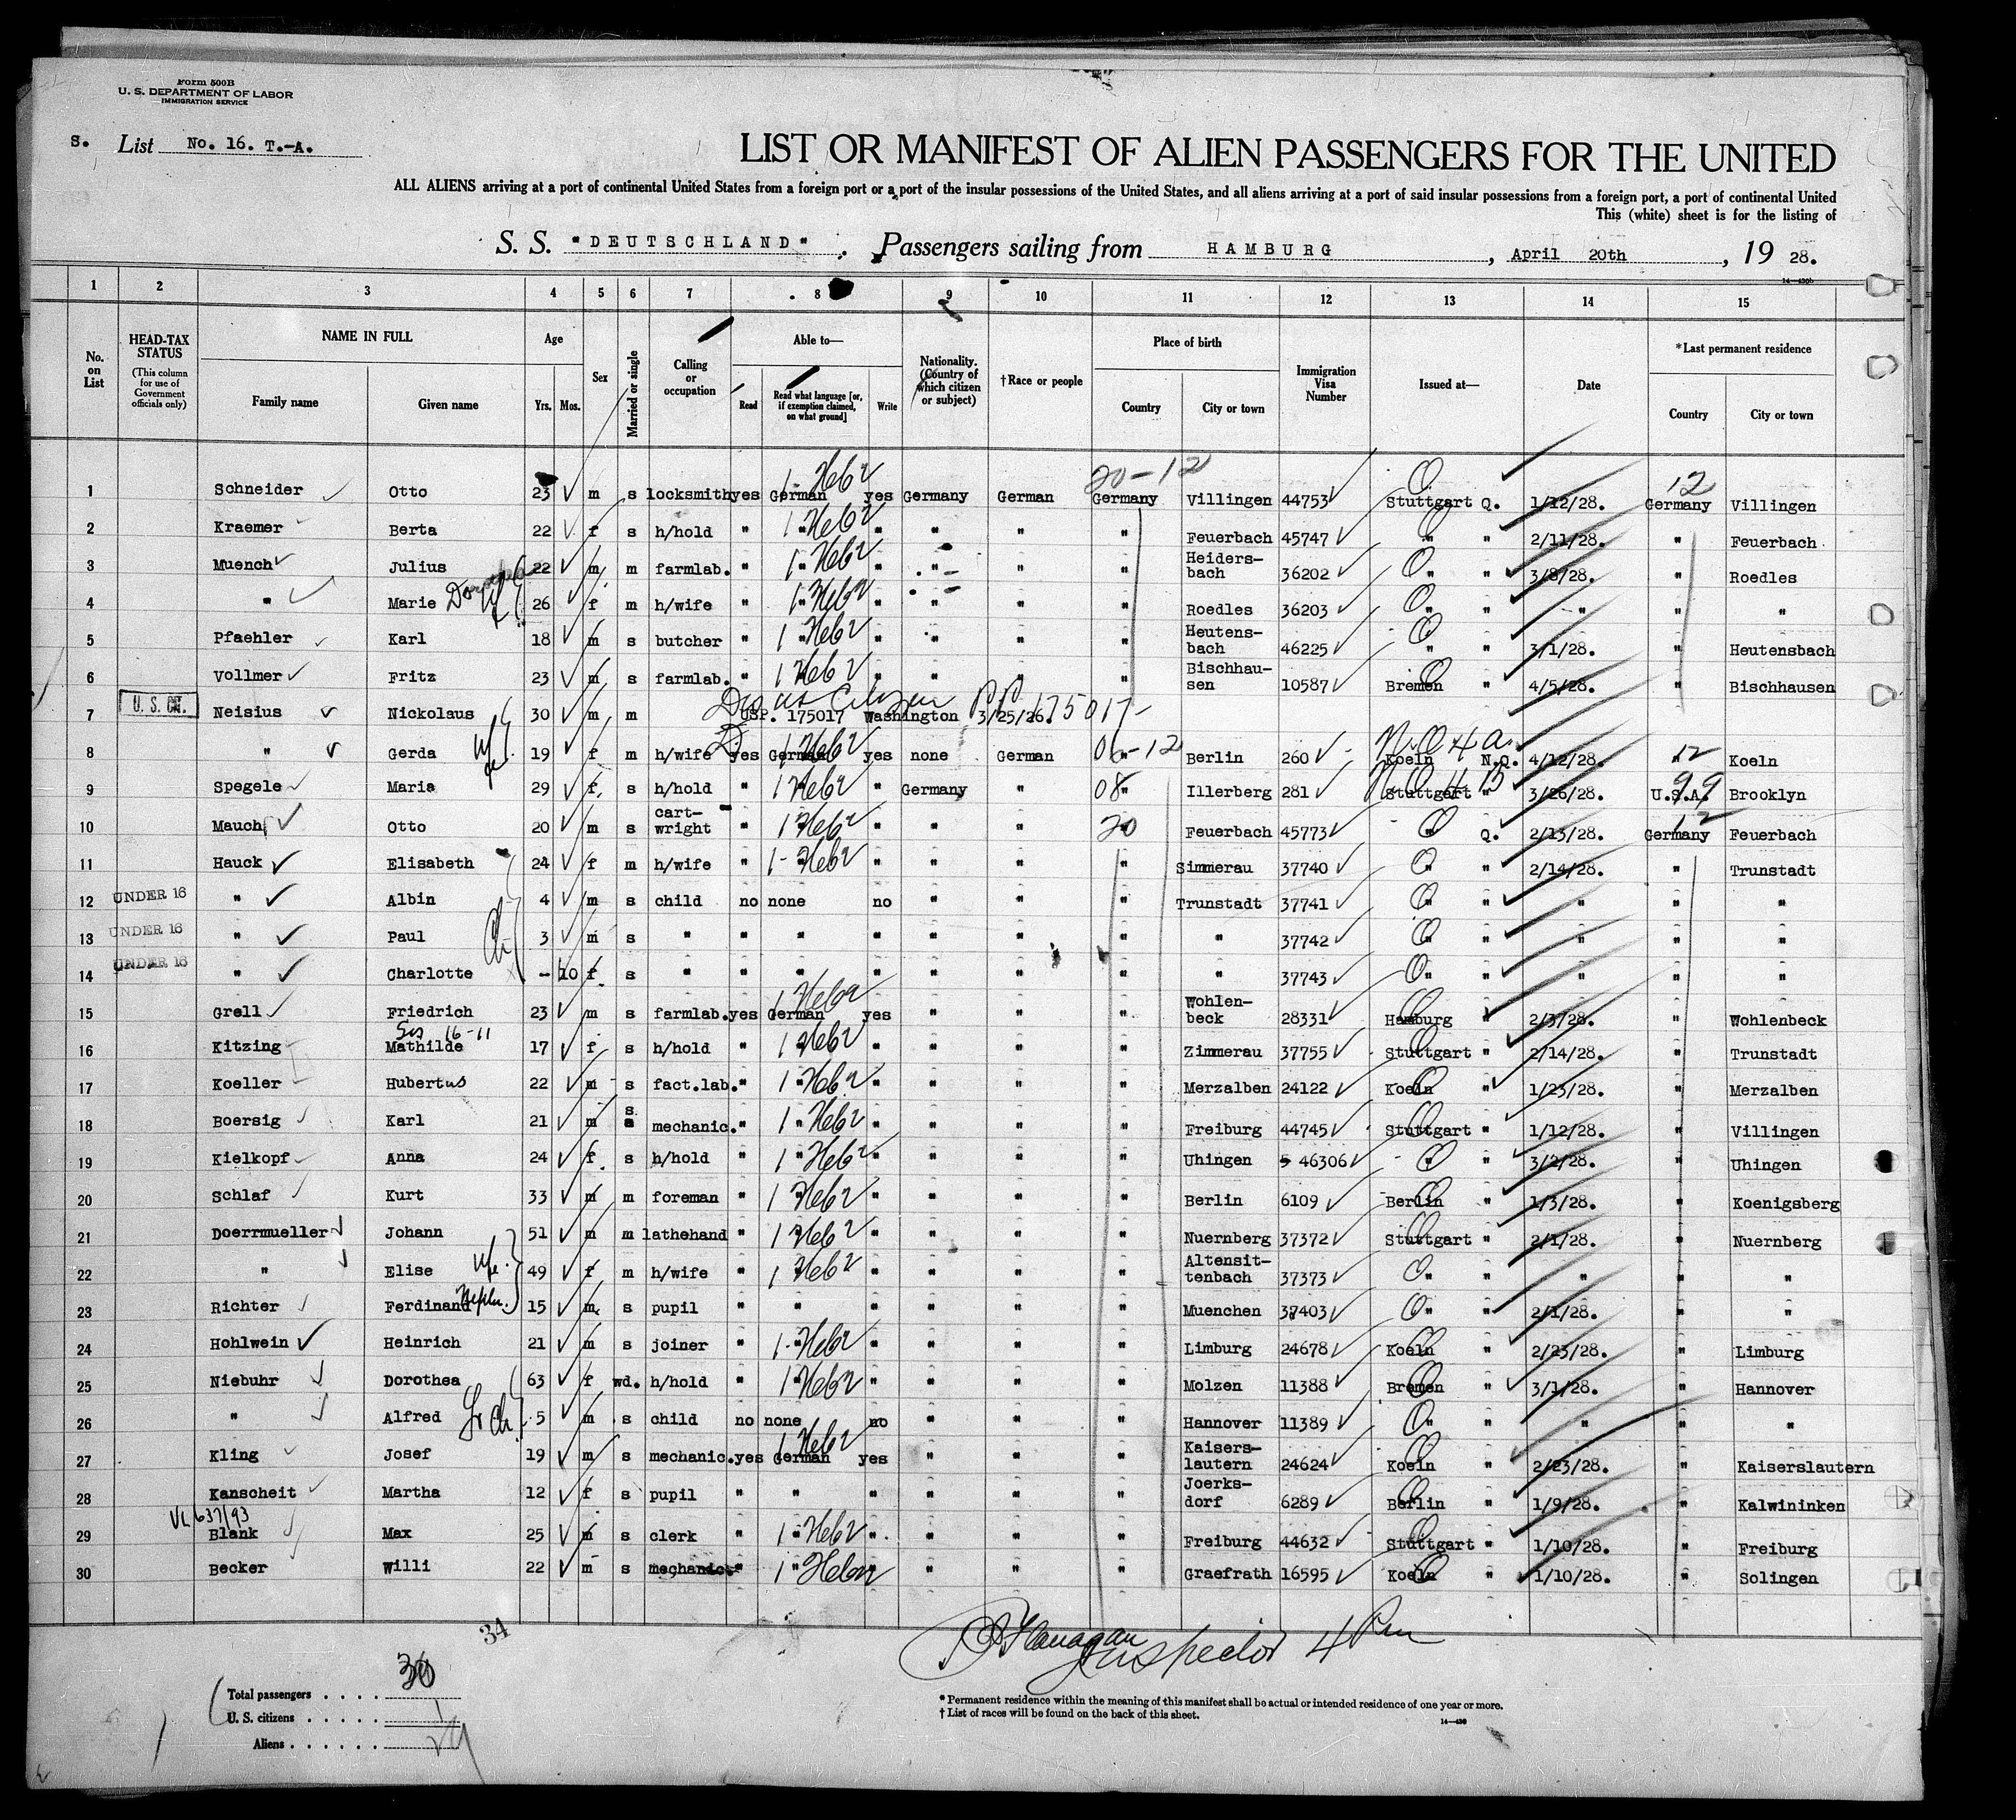 Form 500B
U. S. DEPARTMENT OF LABOR
IMMIGRATION SERVICE
S. List No. 16. T.-A.
LIST OR MANIFEST OF ALIEN PASSENGERS FOR THE UNITED
ALL ALIENS arriving at a port of continental United States from a foreign port or a port of the insular possessions of the United States, and all aliens arriving at a port of said insular possessions from a foreign port, a port of continental United
This (white) sheet is for the listing of
S. S. "DEUTSCHLAND". Passengers sailing from HAMBURG, April 20th, 19 28.
14—430b
1 2 3 4 5 6 7 8 9 10 11 12 13 14 15
No. on List
HEAD-TAX STATUS (This column for use of Government officials only)
NAME IN FULL Family name Given name
Age Yrs. Mos.
Sex
Married or single
Calling or occupation
Able to— Read Read what language [or, if exemption claimed, on what ground] Write
Nationality. (Country of which citizen or subject)
†Race or people
Place of birth Country City or town
Immigration Visa Number
Issued at—
Date
*Last permanent residence Country City or town
20-12 12
1 Schneider Otto 23 m s locksmith yes German yes Germany German Germany Villingen 44753 Stuttgart Q. 1/12/28. Germany Villingen
2 Kraemer Berta 22 f s h/hold " " " " " " Feuerbach 45747 " " 2/11/28. " Feuerbach
3 Muench Julius 22 m m farmlab. " " " " " " Heiders-bach 36202 " " 3/8/28. " Roedles
4 " Marie 26 f m h/wife " " " " " " Roedles 36203 " " " " "
5 Pfaehler Karl 18 m s butcher " " " " " " Heutens-bach 46225 " " 3/1/28. " Heutensbach
6 Vollmer Fritz 23 m s farmlab. " " " " " " Bischhau-sen 10587 Bremen " 4/5/28. " Bischhausen
U. S. CIT.
7 Neisius Nickolaus 30 m m USP. 175017 Washington 3/25/26. PP 175017
8 " Gerda wife 19 f m h/wife yes German yes none German " 06-12 Berlin 260 Koeln N.Q. 4/12/28. " 12 Koeln
9 Spegele Maria 29 f s h/hold " " " Germany " " 08 Illerberg 281 Stuttgart " 3/26/28. U.S.A. 99 Brooklyn
10 Mauch Otto 20 m s cart-wright " " " " " " 20 Feuerbach 45773 " Q. 2/13/28. Germany 12 Feuerbach
11 Hauck Elisabeth 24 f m h/wife " " " " " " Simmerau 37740 " " 2/14/28. " Trunstadt
12 UNDER 16 " Albin 4 m s child no none no " " " Trunstadt 37741 " " " " "
13 UNDER 16 " Paul 3 m s " " " " " " " " 37742 " " " " "
14 UNDER 16 " Charlotte - 10 f s " " " " " " " " 37743 " " " " "
15 Grell Friedrich 23 m s farmlab. yes German yes " " " Wohlen-beck 28331 Hamburg " 2/3/28. " Wohlenbeck
16-11
16 Kitzing Mathilde 17 f s h/hold " " " " " " Zimmerau 37755 Stuttgart " 2/14/28. " Trunstadt
17 Koeller Hubertus 22 m s fact.lab. " " " " " " Merzalben 24122 Koeln " 1/23/28. " Merzalben
18 Boersig Karl 21 m s mechanic. " " " " " " Freiburg 44745 Stuttgart " 1/12/28. " Villingen
19 Kielkopf Anna 24 f s h/hold " " " " " " Uhingen 46306 " " 3/2/28. " Uhingen
20 Schlaf Kurt 33 m m foreman " " " " " " Berlin 6109 Berlin " 1/3/28. " Koenigsberg
21 Doerrmueller Johann 51 m m lathehand " " " " " " Nuernberg 37372 Stuttgart " 2/1/28. " Nuernberg
22 " Elise wfe. 49 f m h/wife " " " " " " Altensit-tenbach 37373 " " " " "
23 Richter Ferdinand Nephew. 15 m s pupil " " " " " " Muenchen 37403 " " 2/1/28. " "
24 Hohlwein Heinrich 21 m s joiner " " " " " " Limburg 24678 Koeln " 2/23/28. " Limburg
25 Niebuhr Dorothea 63 f wd. h/hold " " " " " " Molzen 11388 Bremen " 3/1/28. " Hannover
26 " Alfred Gr Ch. 5 m s child no none no " " " Hannover 11389 " " " " "
27 Kling Josef 19 m s mechanic. yes German yes " " " Kaisers-lautern 24624 Koeln " 2/23/28. " Kaiserslautern
28 Kanscheit Martha 12 f s pupil " " " " " " Joerks-dorf 6289 Berlin " 1/9/28. " Kalwininken
VL 637/93
29 Blank Max 25 m s clerk " " " " " " Freiburg 44632 Stuttgart " 1/10/28. " Freiburg
30 Becker Willi 22 m s mechanic. " " " " " " Graefrath 16595 Koeln " 1/10/28. " Solingen
34
Flanagan Inspector 4 Pm
Total passengers . . . . 30
U. S. citizens . . . . . 1
Aliens . . . . . . 29
* Permanent residence within the meaning of this manifest shall be actual or intended residence of one year or more.
† List of races will be found on the back of this sheet.
14—430